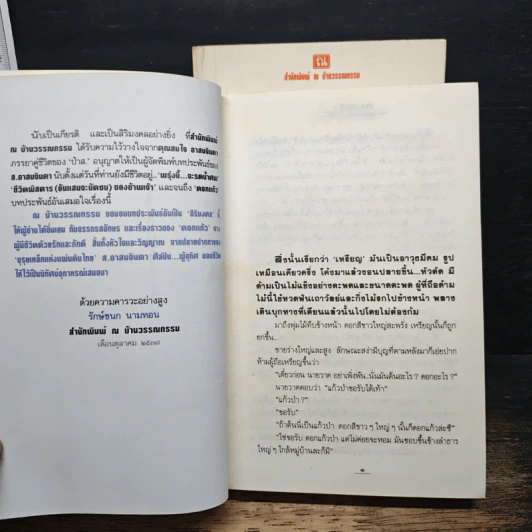 ณ
สำนักพิมพ์ ณ บ้านวรรณกรรม
นับเป็นเกียรติ และเป็นสิริมงคลอย่างยิ่ง ที่สำนักพิมพ์
ณ บ้านวรรณกรรม ได้รับความไว้วางใจจากคุณสมใจ อาสนจินดา
ภรรยาคู่ชีวิตของ 'ป๋าส.' อนุญาตให้เป็นผู้จัดพิมพ์บทประพันธ์ของ
ส.อาสนจินดา นับตั้งแต่วันที่ท่านยังมีชีวิตอยู่..."พรุ่งนี้...จะรดน้ำศพ"
'ชีวิตพิสดาร (อันแสนจะบัดซบ) ของข้าพเจ้า' และจนถึง 'ดอกแก้ว'
บทประพันธ์อันเสมอใจเรื่องนี้
ณ บ้านวรรณกรรม ขอมอบบทประพันธ์อันเป็น 'สิริมงคล' นี้
ให้ผู้อ่านได้ชื่นชม กับอรรถรสอักษร และเรื่องราวของ 'ดอกแก้ว' จาก
ผู้มีชีวิตด้วยรักและภักดี ลิ้นทั้งหัวใจและวิญญาณ จากปลายปากกาของ
'บุรุษเหล็กแห่งแผ่นดินไทย' ส.อาสนจินดา ศิลปิน...ผู้อุทิศ มอบชีวิต
ให้ไว้เป็นพิพิธอุทาหรณ์เสมอมา
ด้วยความคารวะอย่างสูง
รักษ์ชนก นามทอน
สำนักพิมพ์ ณ บ้านวรรณกรรม
เดือนตุลาคม ๒๕๓๘
สิ่งนั้นเรียกว่า 'เหรียญ' มันเป็นอาวุธมีคม รูป
เหมือนเคียวครึ่ง โค้งมาแล้วงอนปลายขึ้น...หัวตัด มี
ด้ามเป็นไม้แข็งอย่างตะพดและขนาดตะพด ผู้ที่ถือด้าม
ไม้นี้ใช้หวดฟันเถาวัลย์และกิ่งไม้รกไปข้างหน้า พลาง
เดินบุกทางที่เตียนแล้วนั้นไปโดยไม่ต้องก้ม
มาถึงพุ่มไม้ทึบข้างหน้า ดอกสีขาวใหญ่สะพรั่ง เหรียญนั้นก็ถูก
ยกขึ้น...
ชายร่างใหญ่และสูง ลักษณะสง่ามีบุญที่ตามหลังมาก็เอ่ยปาก
ห้ามผู้ถือเหรียญขึ้นว่า
"เดี๋ยวก่อน นายวาด อย่าเพิ่งฟัน..นั่นมันต้นอะไร ? ดอกอะไร ?"
นายวาดตอบว่า "แก้วป่าขอรับใต้เท้า"
"แก้วป่า ?"
"ขอรับ"
"ถ้าต้นนี่เป็นแก้วป่า ดอกสีขาว ๆ ใหญ่ ๆ นั้นก็ดอกแก้วล่ะซี"
"ใช่ขอรับ ดอกแก้วป่า แต่ไม่ค่อยจะหอม มันชอบขึ้นข้างลำธาร
ใหญ่ ๆ ใกล้หมู่บ้านละก็มี"